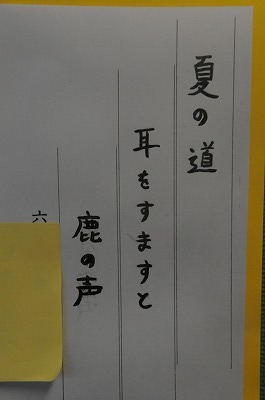 夏の道
耳をすますと
鹿の声
六